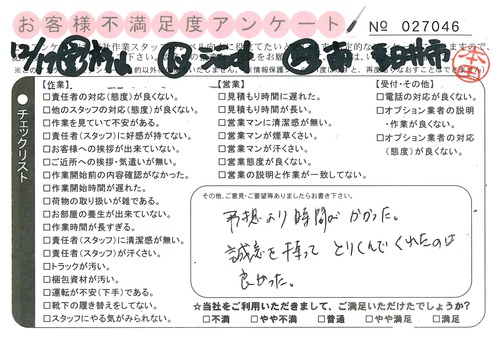 お客様不満足度アンケート
№ 027046
【作業】
□責任者の対応(態度)が良くない。
□他のスタッフの対応(態度)が良くない。
□作業を見ていて不安がある。
□責任者(スタッフ)に好感が持てない。
□お客様への挨拶が出来ていない。
□ご近所への挨拶・気遣いが無い。
□作業開始前の内容確認がなかった。
□作業開始時間が遅れた。
□荷物の取り扱いが雑である。
□お部屋の養生が出来ていない。
□作業時間が長すぎる。
□責任者(スタッフ)に清潔感が無い。
□責任者(スタッフ)が汗くさい。
□トラックが汚い。
□梱包資材が汚い。
□運転が不安(下手)である。
□靴下の履き替えをしてない。
□スタッフにやる気がみられない。
【営業】
□見積もり時間に遅れた。
□見積もり時間が長い。
□営業マンに清潔感が無い。
□営業マンが煙草くさい。
□営業マンが汗くさい。
□営業態度が良くない。
□営業の説明と作業が一致してない。
【受付・その他】
□電話の対応が良くない。
□オプション業者の説明
・作業が良くない。
□オプション業者の対応
(態度)が良くない。
チェックリスト
その他、ご意見・ご要望等ありましたらお書き下さい。
予想より時間がかかった。
誠意を持って とりくんでくれたのは
良かった。
☆当社をご利用いただきまして、ご満足いただけたでしょうか?
□不満 □やや不満 □普通 □やや満足 □満足